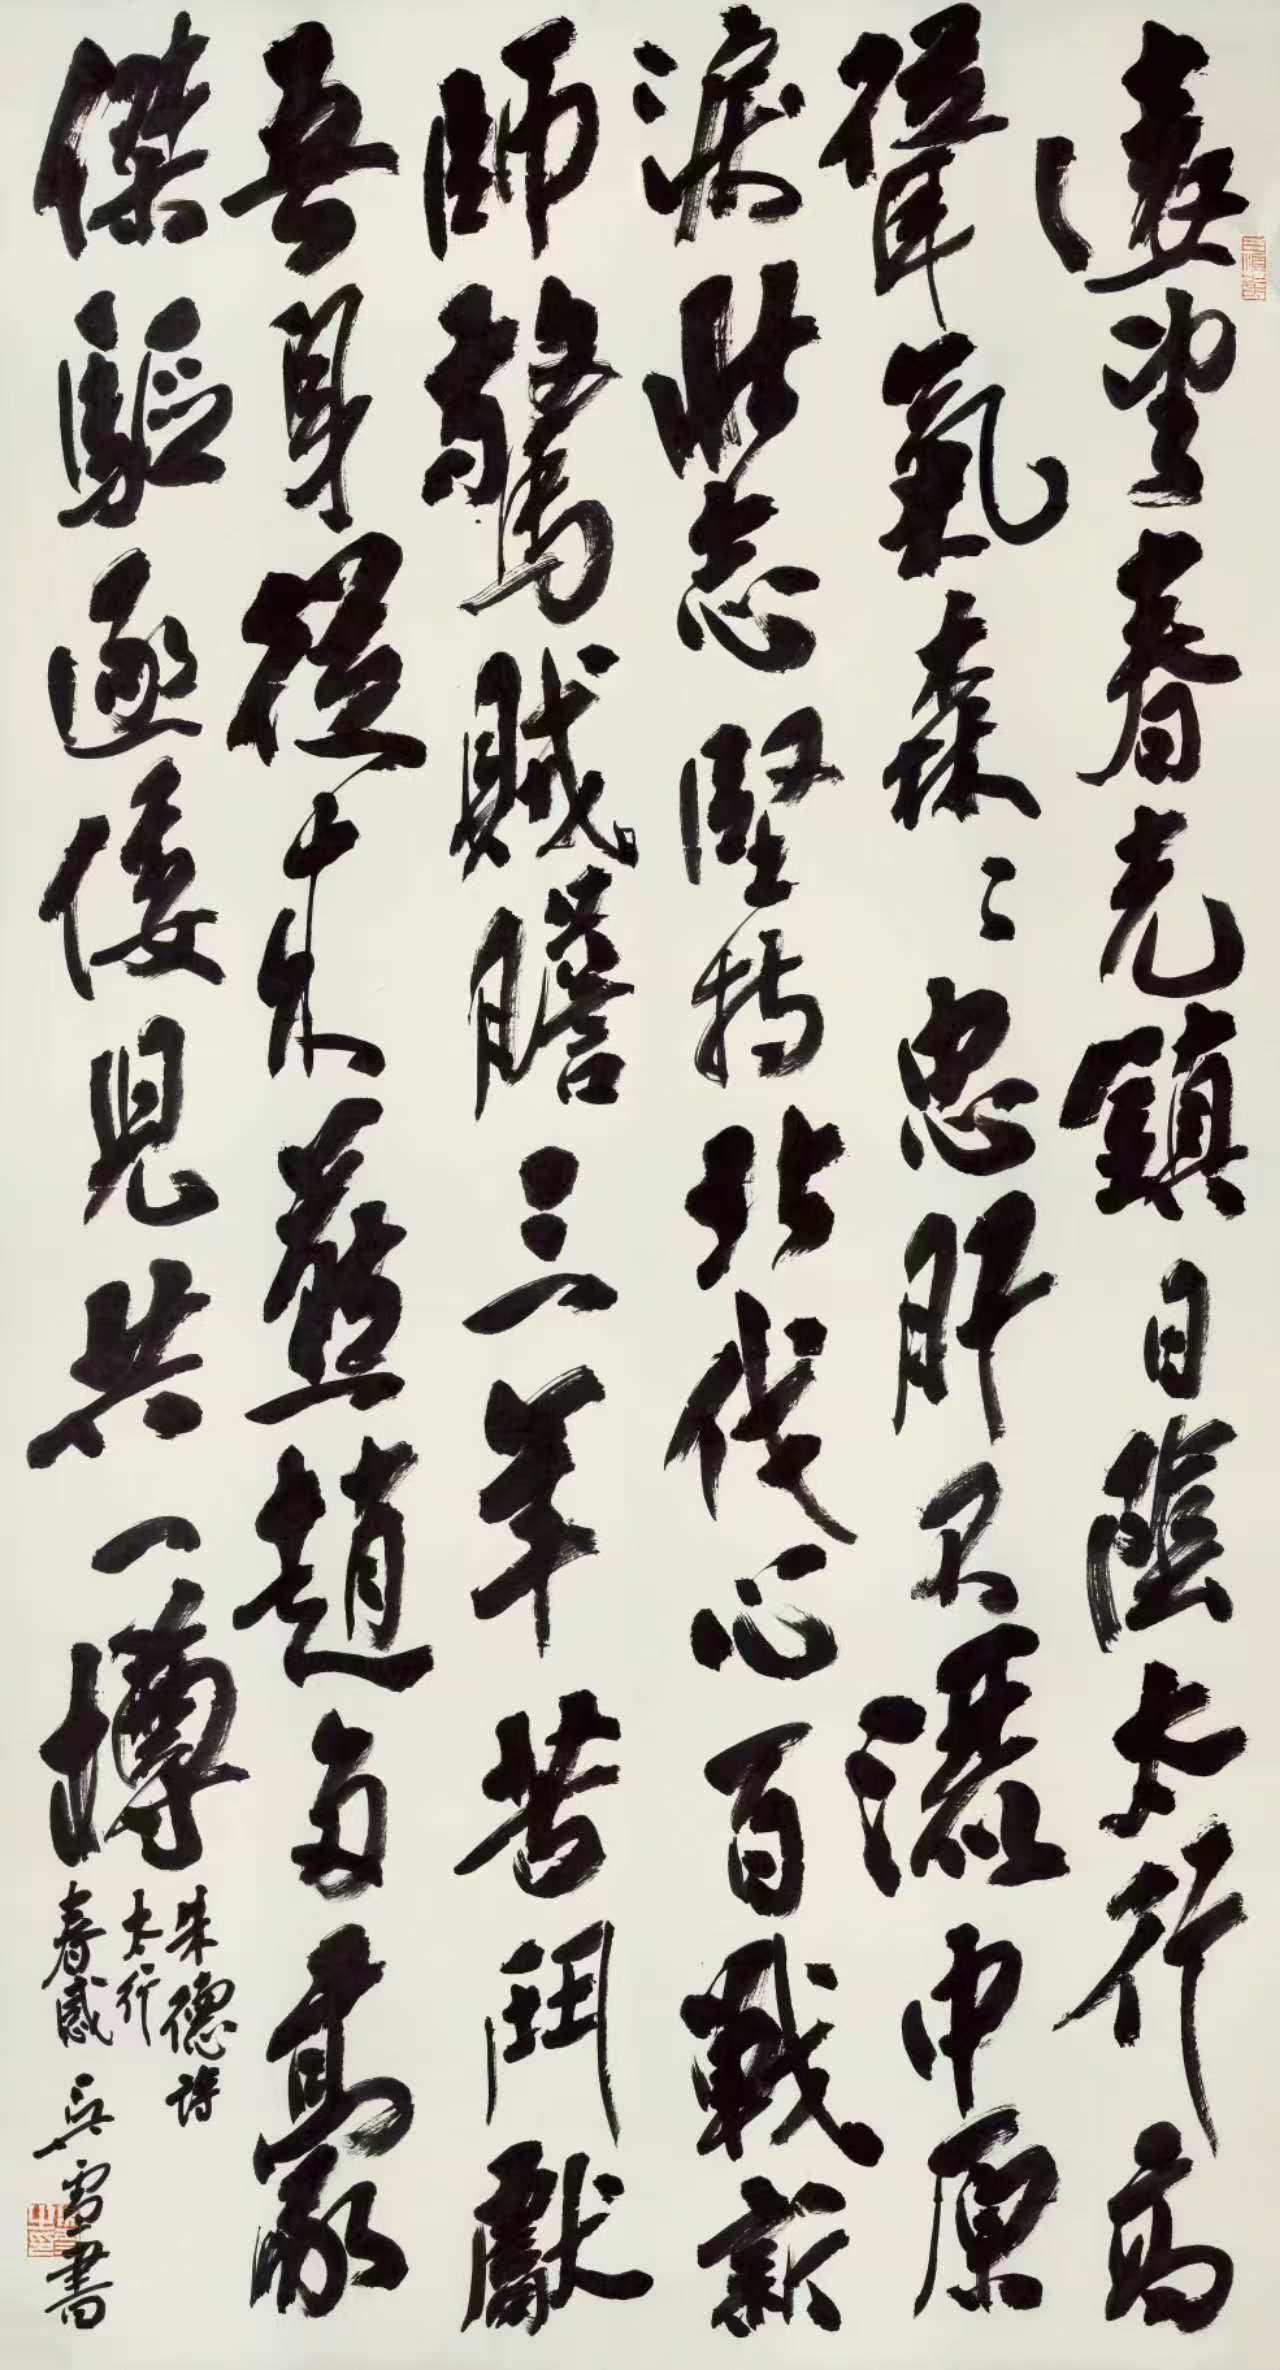 遠望春光鎮日陰太行高
聳氣森〻忠肝不灑中原
淚壯志堅持北伐心百戰新
師驚賊膽三年苦鬥獻
吾身從來燕趙多豪
傑驅逐倭兒共一樽
朱德詩
太行
春感 吳雪書